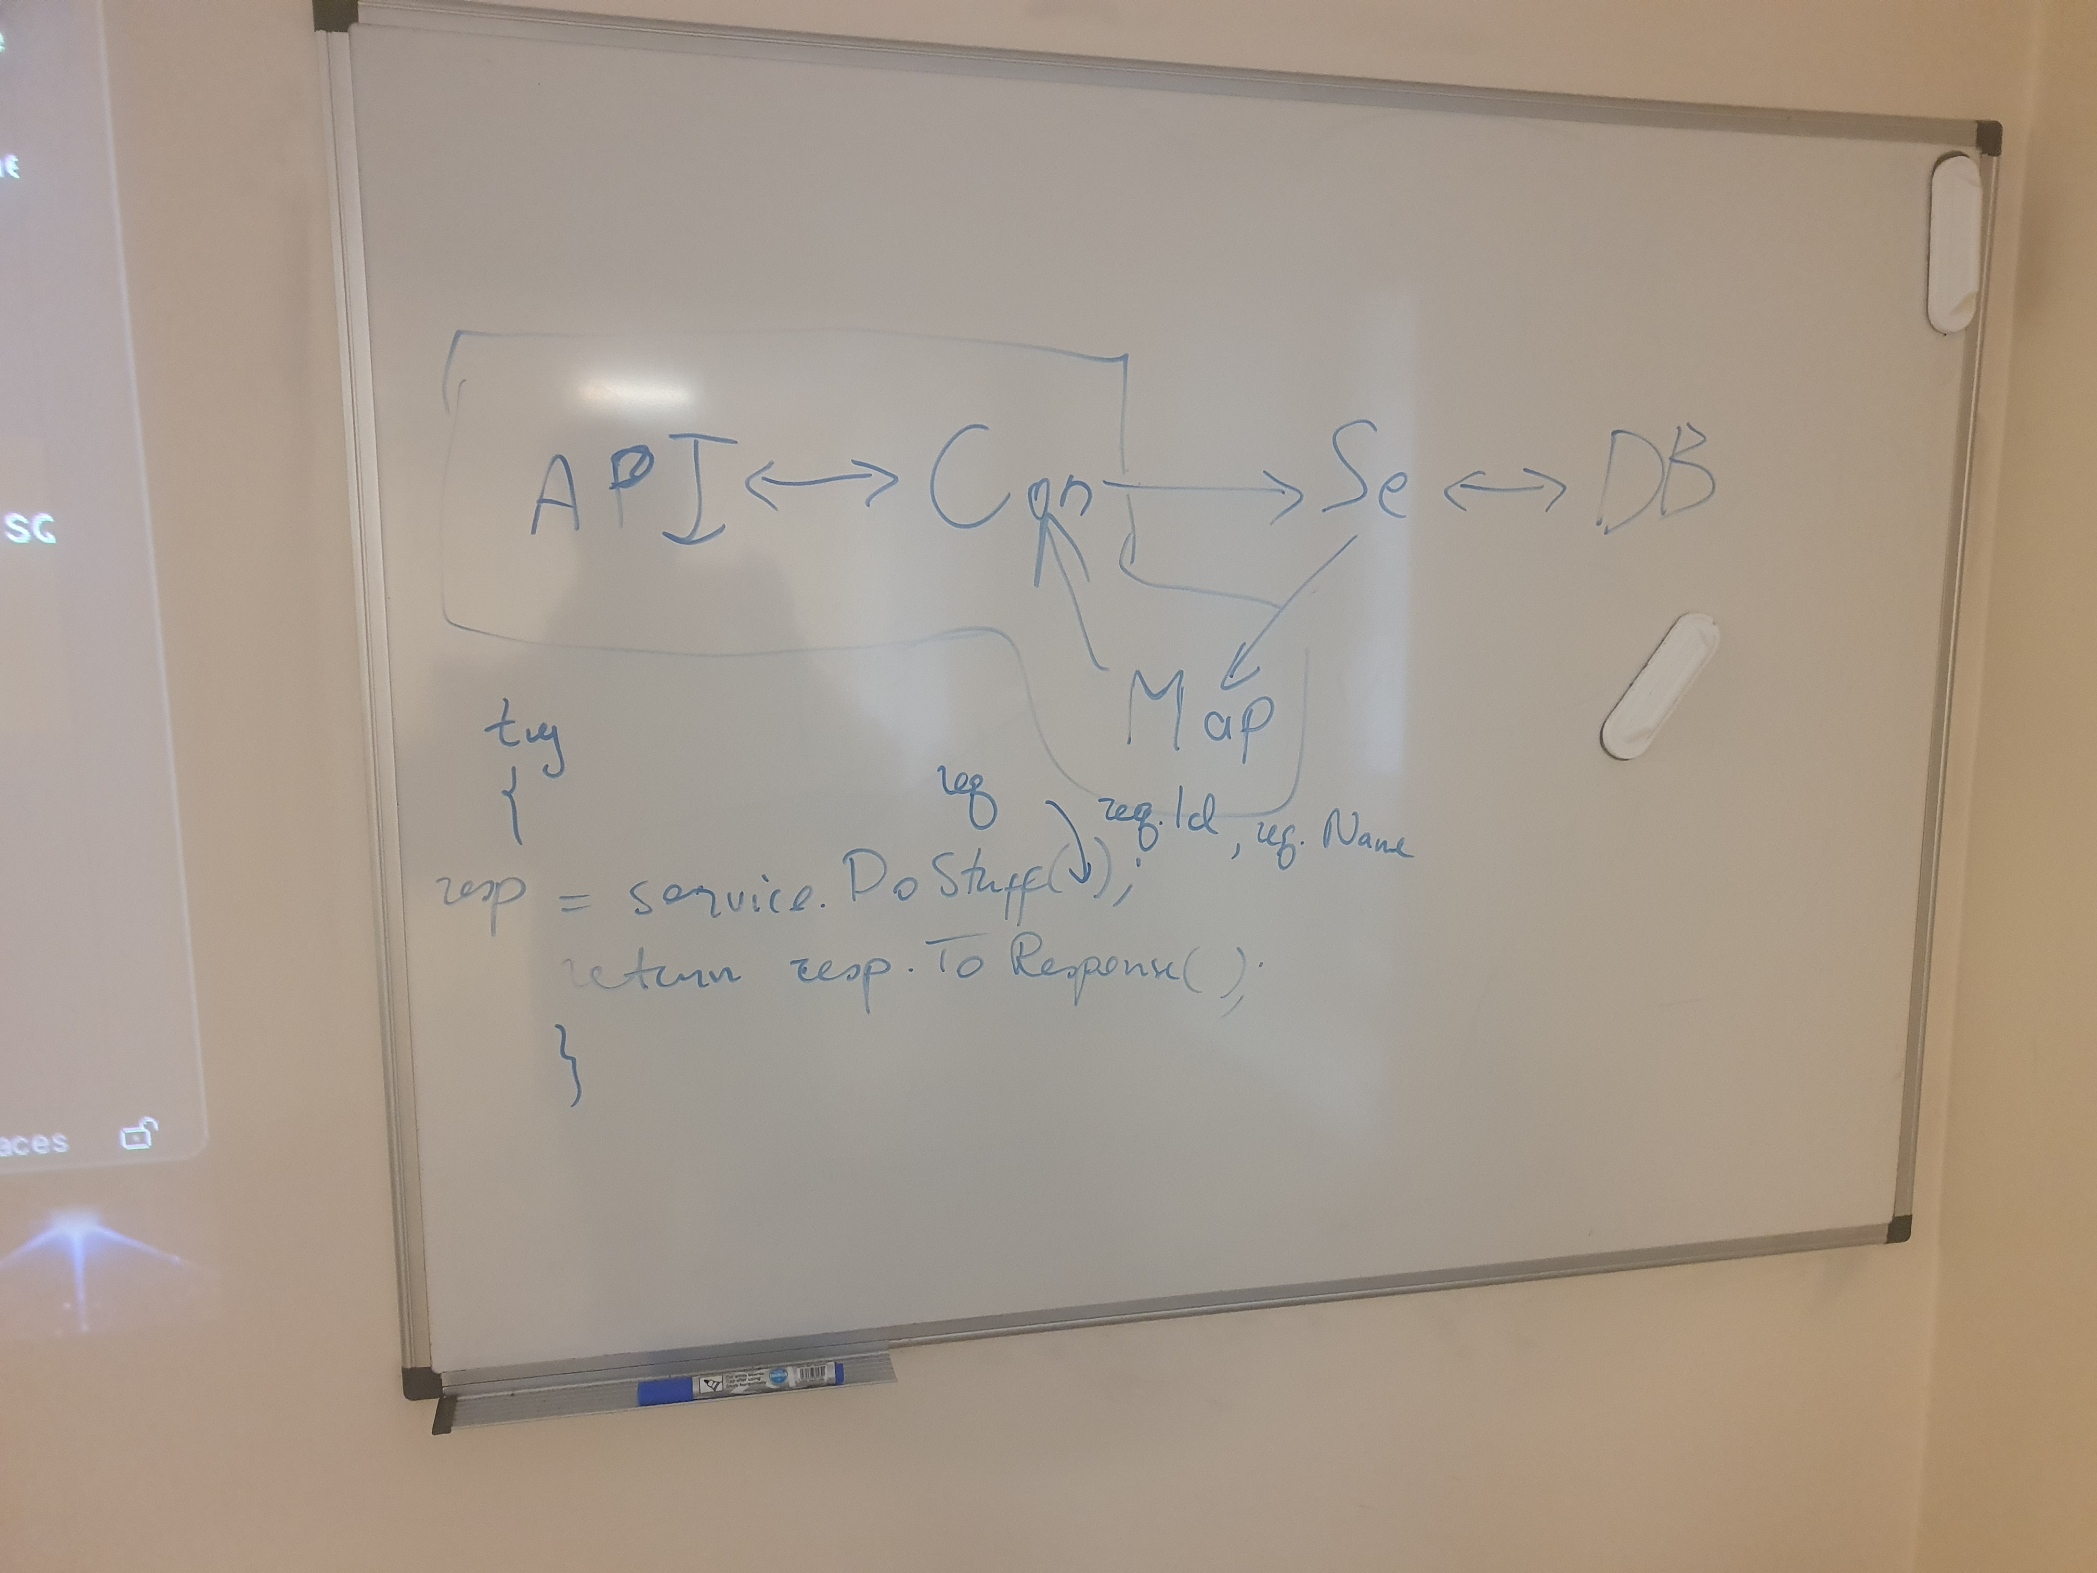 SQ
aces
API Con Se DB
Map
try
{
req req.Id, req.Name
resp = service.DoStuff( );
return resp.ToResponse();
}